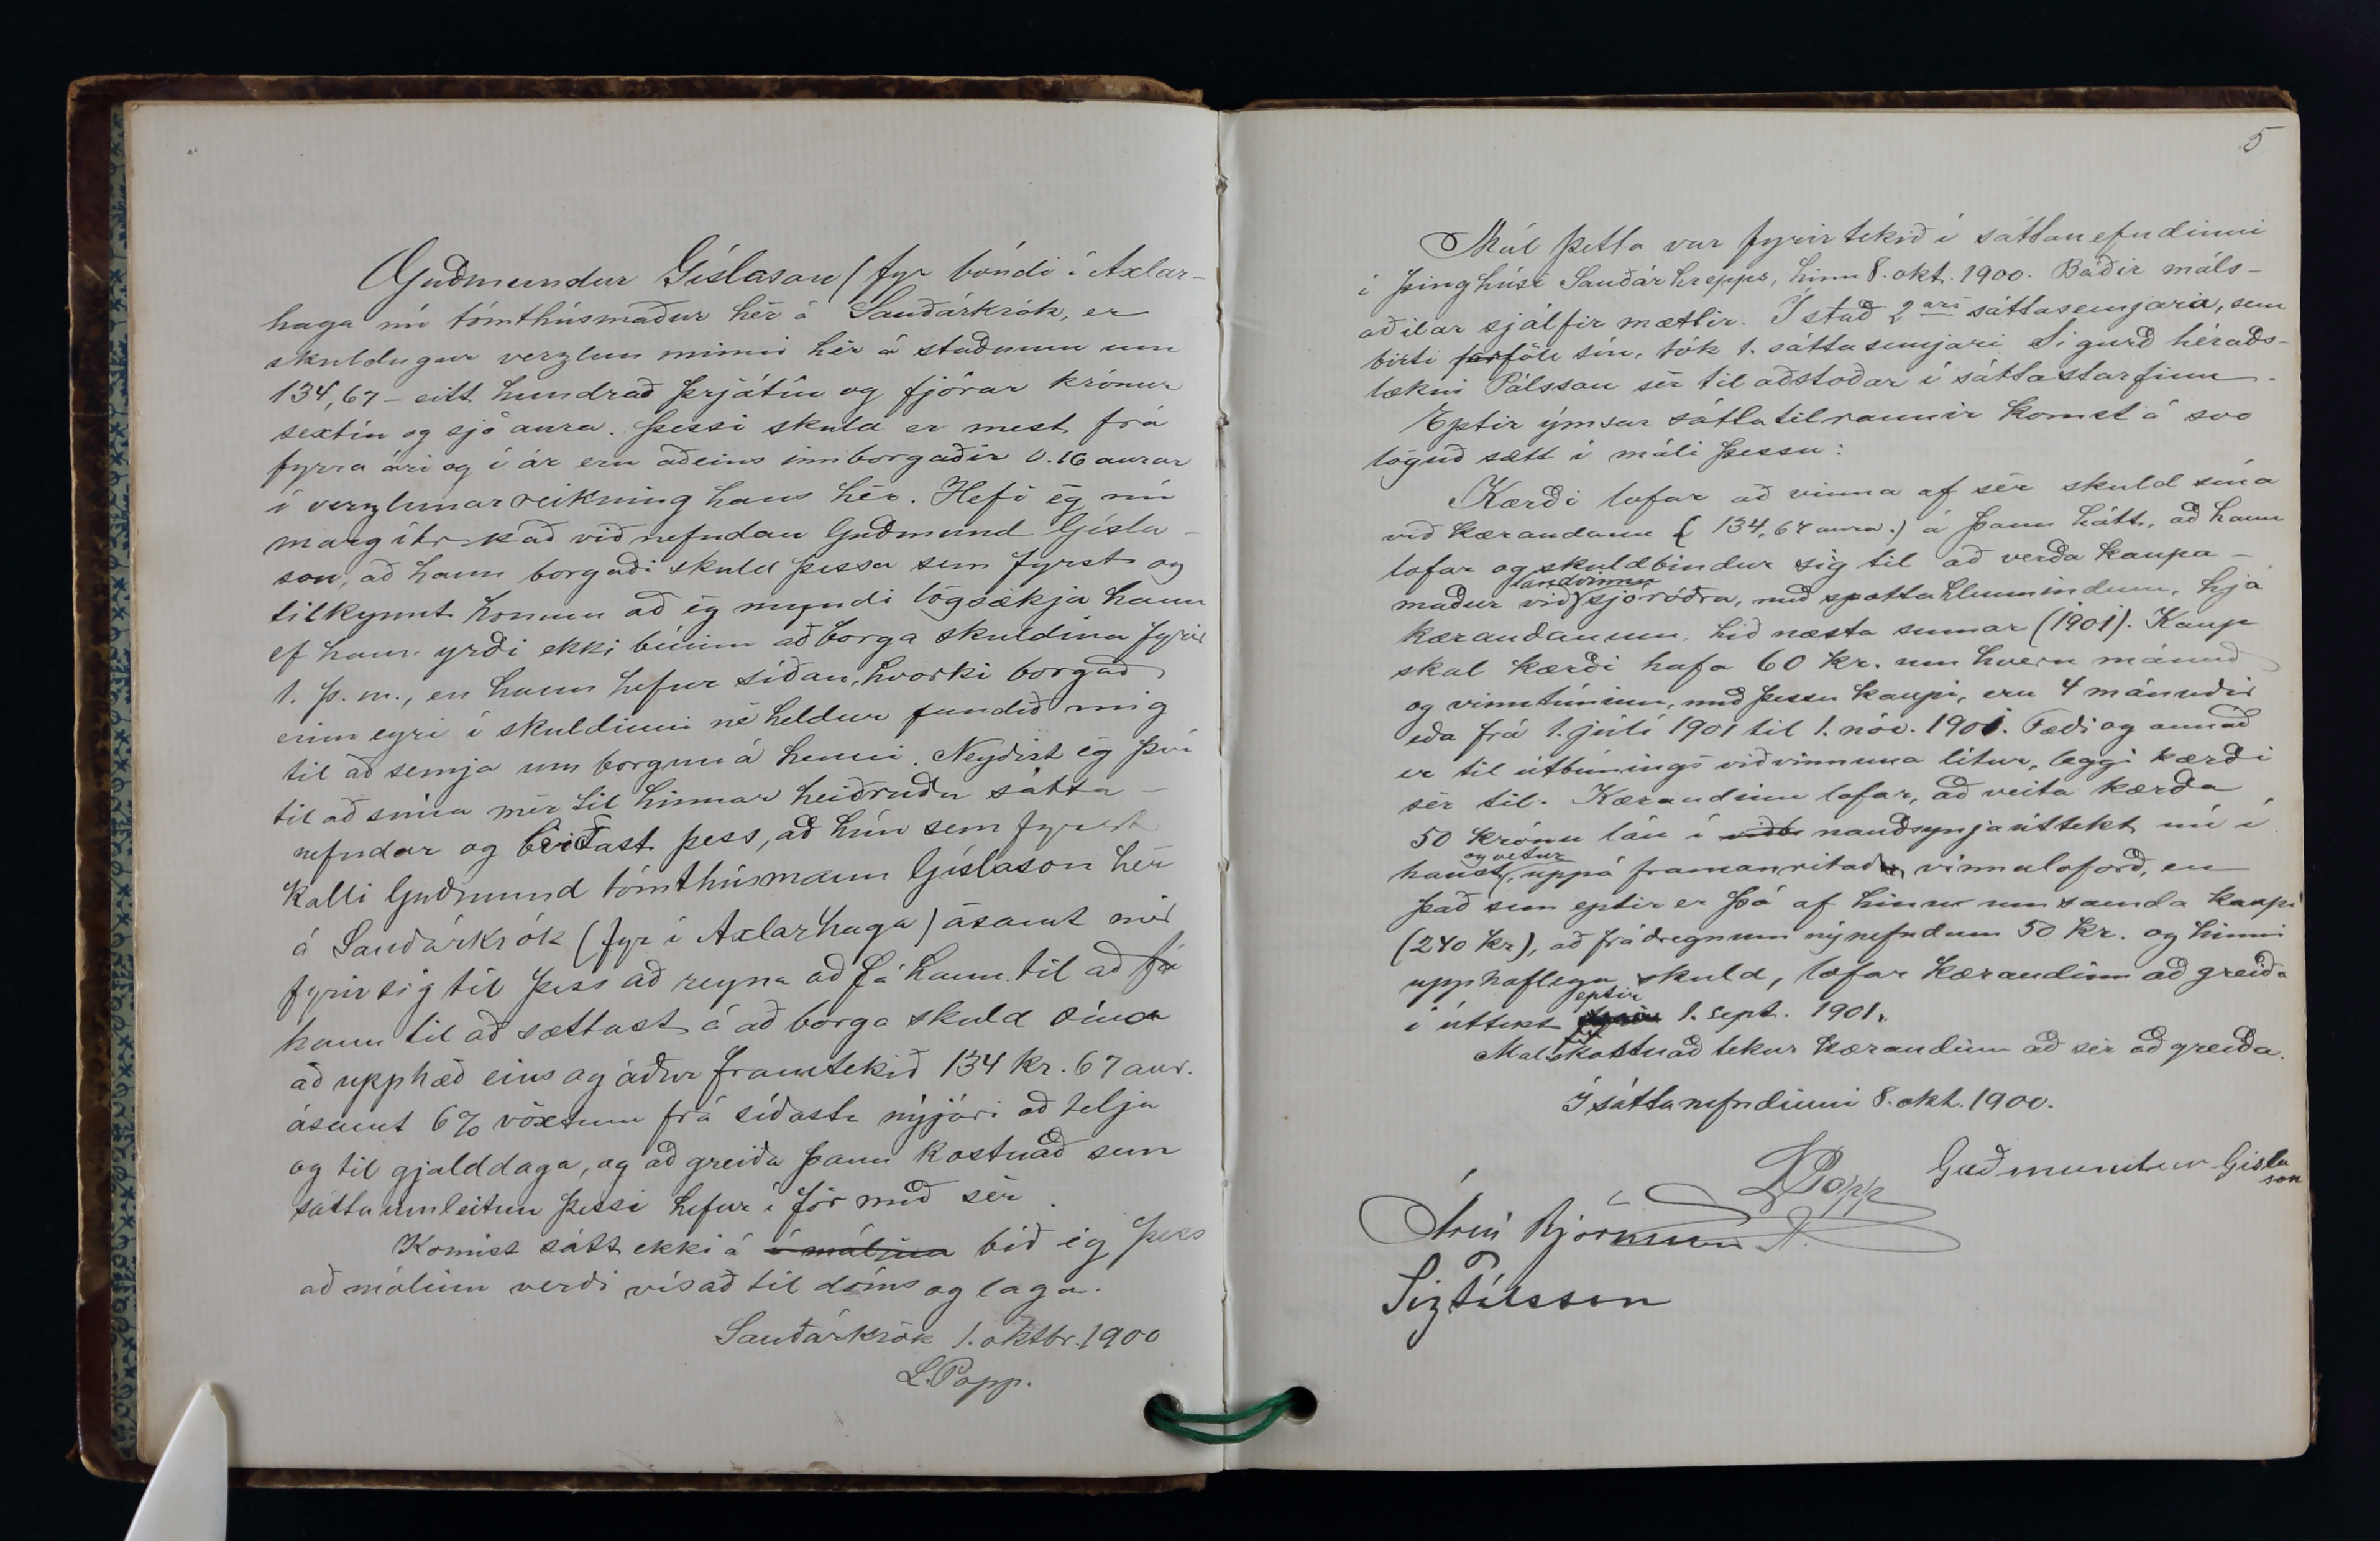 Guðmundur Gíslason (fyr bóndi í Axlar-
haga nú tómthúsmaður hér á Sauðárkrók, er
skuldugur verzlun minni hér á staðnum um
134,67 – eitt hundrað þrjátíu og fjórar krónur
sextíu og sjö aura. Þessi skuld er mest frá
fyrra ári og í ár eru aðeins innborgaðir 0.16 aurar
í verzlunarreikning hans hér. Hefi ég nú
margítrekað við nefndan Guðmund Gísla-
son, að hann borgaði skuld þessa sem fyrst og
tilkynnt honum að ég myndi lögsækja hann
ef hann yrði ekki búinn að borga skuldina fyrir
1. þ.m., en hann hefur síðan, hvorki borgað
einn eyri í skuldinni né heldur fundið mig
til að semja um borgun á henni. Neyðist ég því
til að snúa mér til hinnar heiðruðu sátta-
nefndar og beiðast þess, að hún sem fyrst
kalli Guðmund tómthúsmann Gíslason hér
á Sauðárkrók (fyr í Axlarhaga) ásamt mér
fyrir sig til þess að reyna að fá hann til að fá
hann til að sættast á að borga skuld sína
að upphæð eins og áður framtekið 134 kr. 67 aur.
ásamt 6% vöxtum frá síðasta nýjári að telja
og til gjalddaga, og að greiða þann kostnað sem
sáttaumleitun þessi hefur í för með sér.
Komist sátt ekki á í málinu bið ég þess
að málinu verði vísað til dóms og laga.
Sauðárkrók 1. oktbr. 1900
L. Popp.
5
Mál þetta var fyrirtekið í sáttanefndinni
í þinghúsi Sauðárhrepps, hinn 8. okt. 1900. Báðir máls-
aðilar sjálfir mættir. Í stað 2ars sáttasemjara, sem
birti forföll sín, tók 1. sáttasemjari Sigurð héraðs-
lækni Pálsson sér til aðstoðar í sáttastarfinu.
Eptir ýmsar sáttatilraunir komst á svo
löguð sætt í máli þessu:
Kærði lofar að vinna af sér skuld sína
við kærandann (134,67 aura.) á þann hátt, að hann
lofar og skuldbindur sig til að verða kaupa-
landvinnu
maður við sjóróðra, með spottahlunnindum, hjá
kærandanum, hið næsta sumar (1901). Kaup
skal kærði hafa 60 kr. um hvern mánuð
og vinnutíminn, með þessu kaupi, eru 4 mánuðir
eða frá 1. júlí 1901 til 1. nóv. 1901. Fæði og annað
er til útbúnings við vinnuna lítur, leggi kærði
sér til. Kærandinn lofar, að veita kærða
50 krónu lán í nauðsynjaúttekt nú í
og vetur
haust, uppá framanritað vinnuloforð, en
það sem eptir er þá af hinu umsamda kaupi
(240 kr), að frádregnum nýnefndum 50 kr. og hinni
upphaflegu skuld, lofar kærandinn að greiða
eptir
í úttekt 1. sept. 1901.
Málskostnað tekur kærandinn að sér að greiða.
Í sáttanefndinni 8. okt. 1900.
L Popp Guðmundur Gísla
son
Árni Björnsson
Sig Pálsson